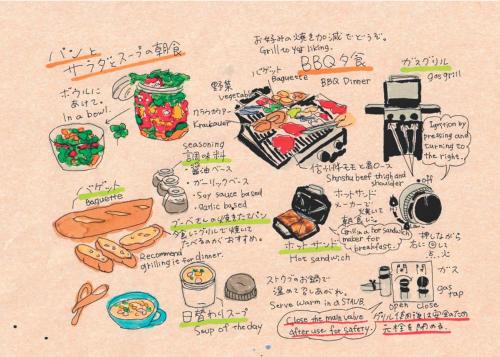 パンと
サラダとスープの朝食
ボウルに
あけて。
In a bowl.
お好みの焼き加減でどうぞ。
Grill to your liking.
BBQ夕食
BBQ Dinner
バゲット
Baguette
野菜
vegetable
クラカウアー
Krakauer
信州牛モモと肩ロース
Shinshu beef thigh and
shoulder
ガスグリル
gas grill
Ignition by
pressing and
turning to
the right.
Off
seasoning
調味料
・醤油ベース
・ガーリックベース
・Soy sauce based
・garlic based
バゲット
Baguette
夕食にグリルで焼いて
たべるのがおすすめ。
Recommend
grilling it for dinner.
ホットサンド
メーカーで
焼いて
朝食に。
Grill in a hot sandwich
maker for
breakfast.
ホットサンド
Hot sandwich
押しながら
右に回して
点火
ガス
gas
tap
open close
日替わりスープ
Soup of the day
ストウブのお鍋で
温めて召しあがれ。
Serve warm in a STAUB.
Close the main valve
after use for safety.
グリル使用後は安全のため
元栓を閉める。